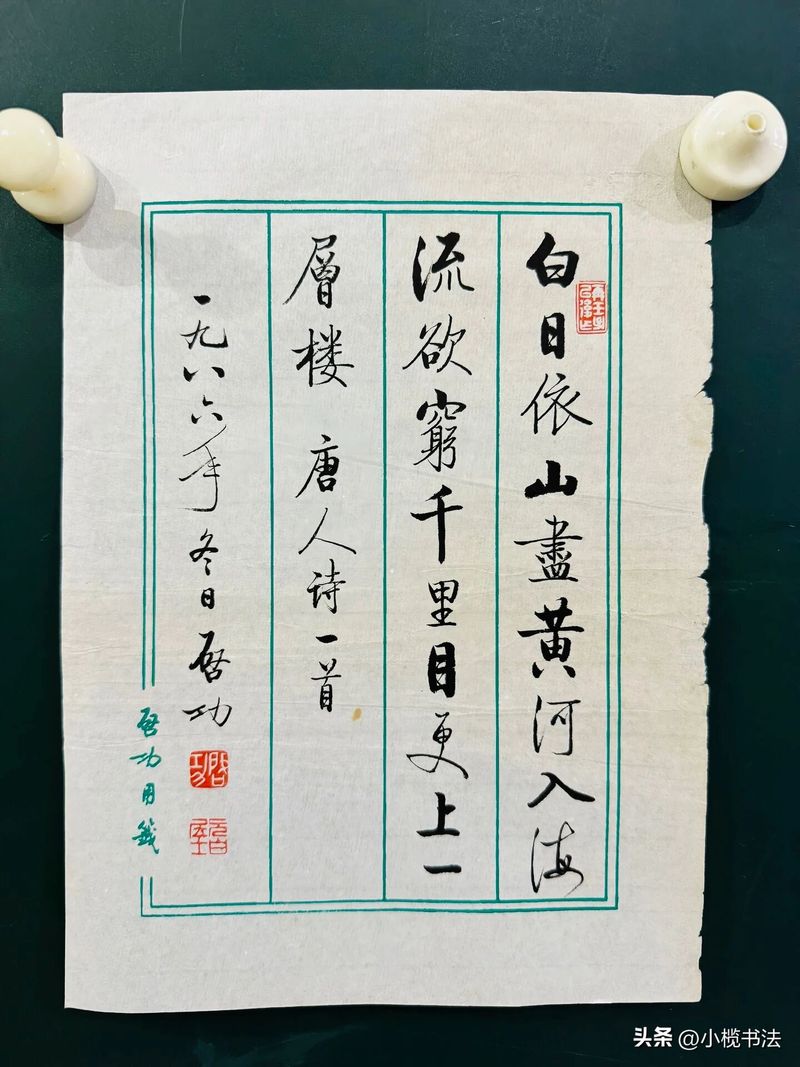 白日依山盡黃河入海
流欲窮千里目更上一
層楼 唐人诗一首
一九八六年冬日 启功
启功
元白
启功用箋
头条 @小榄书法